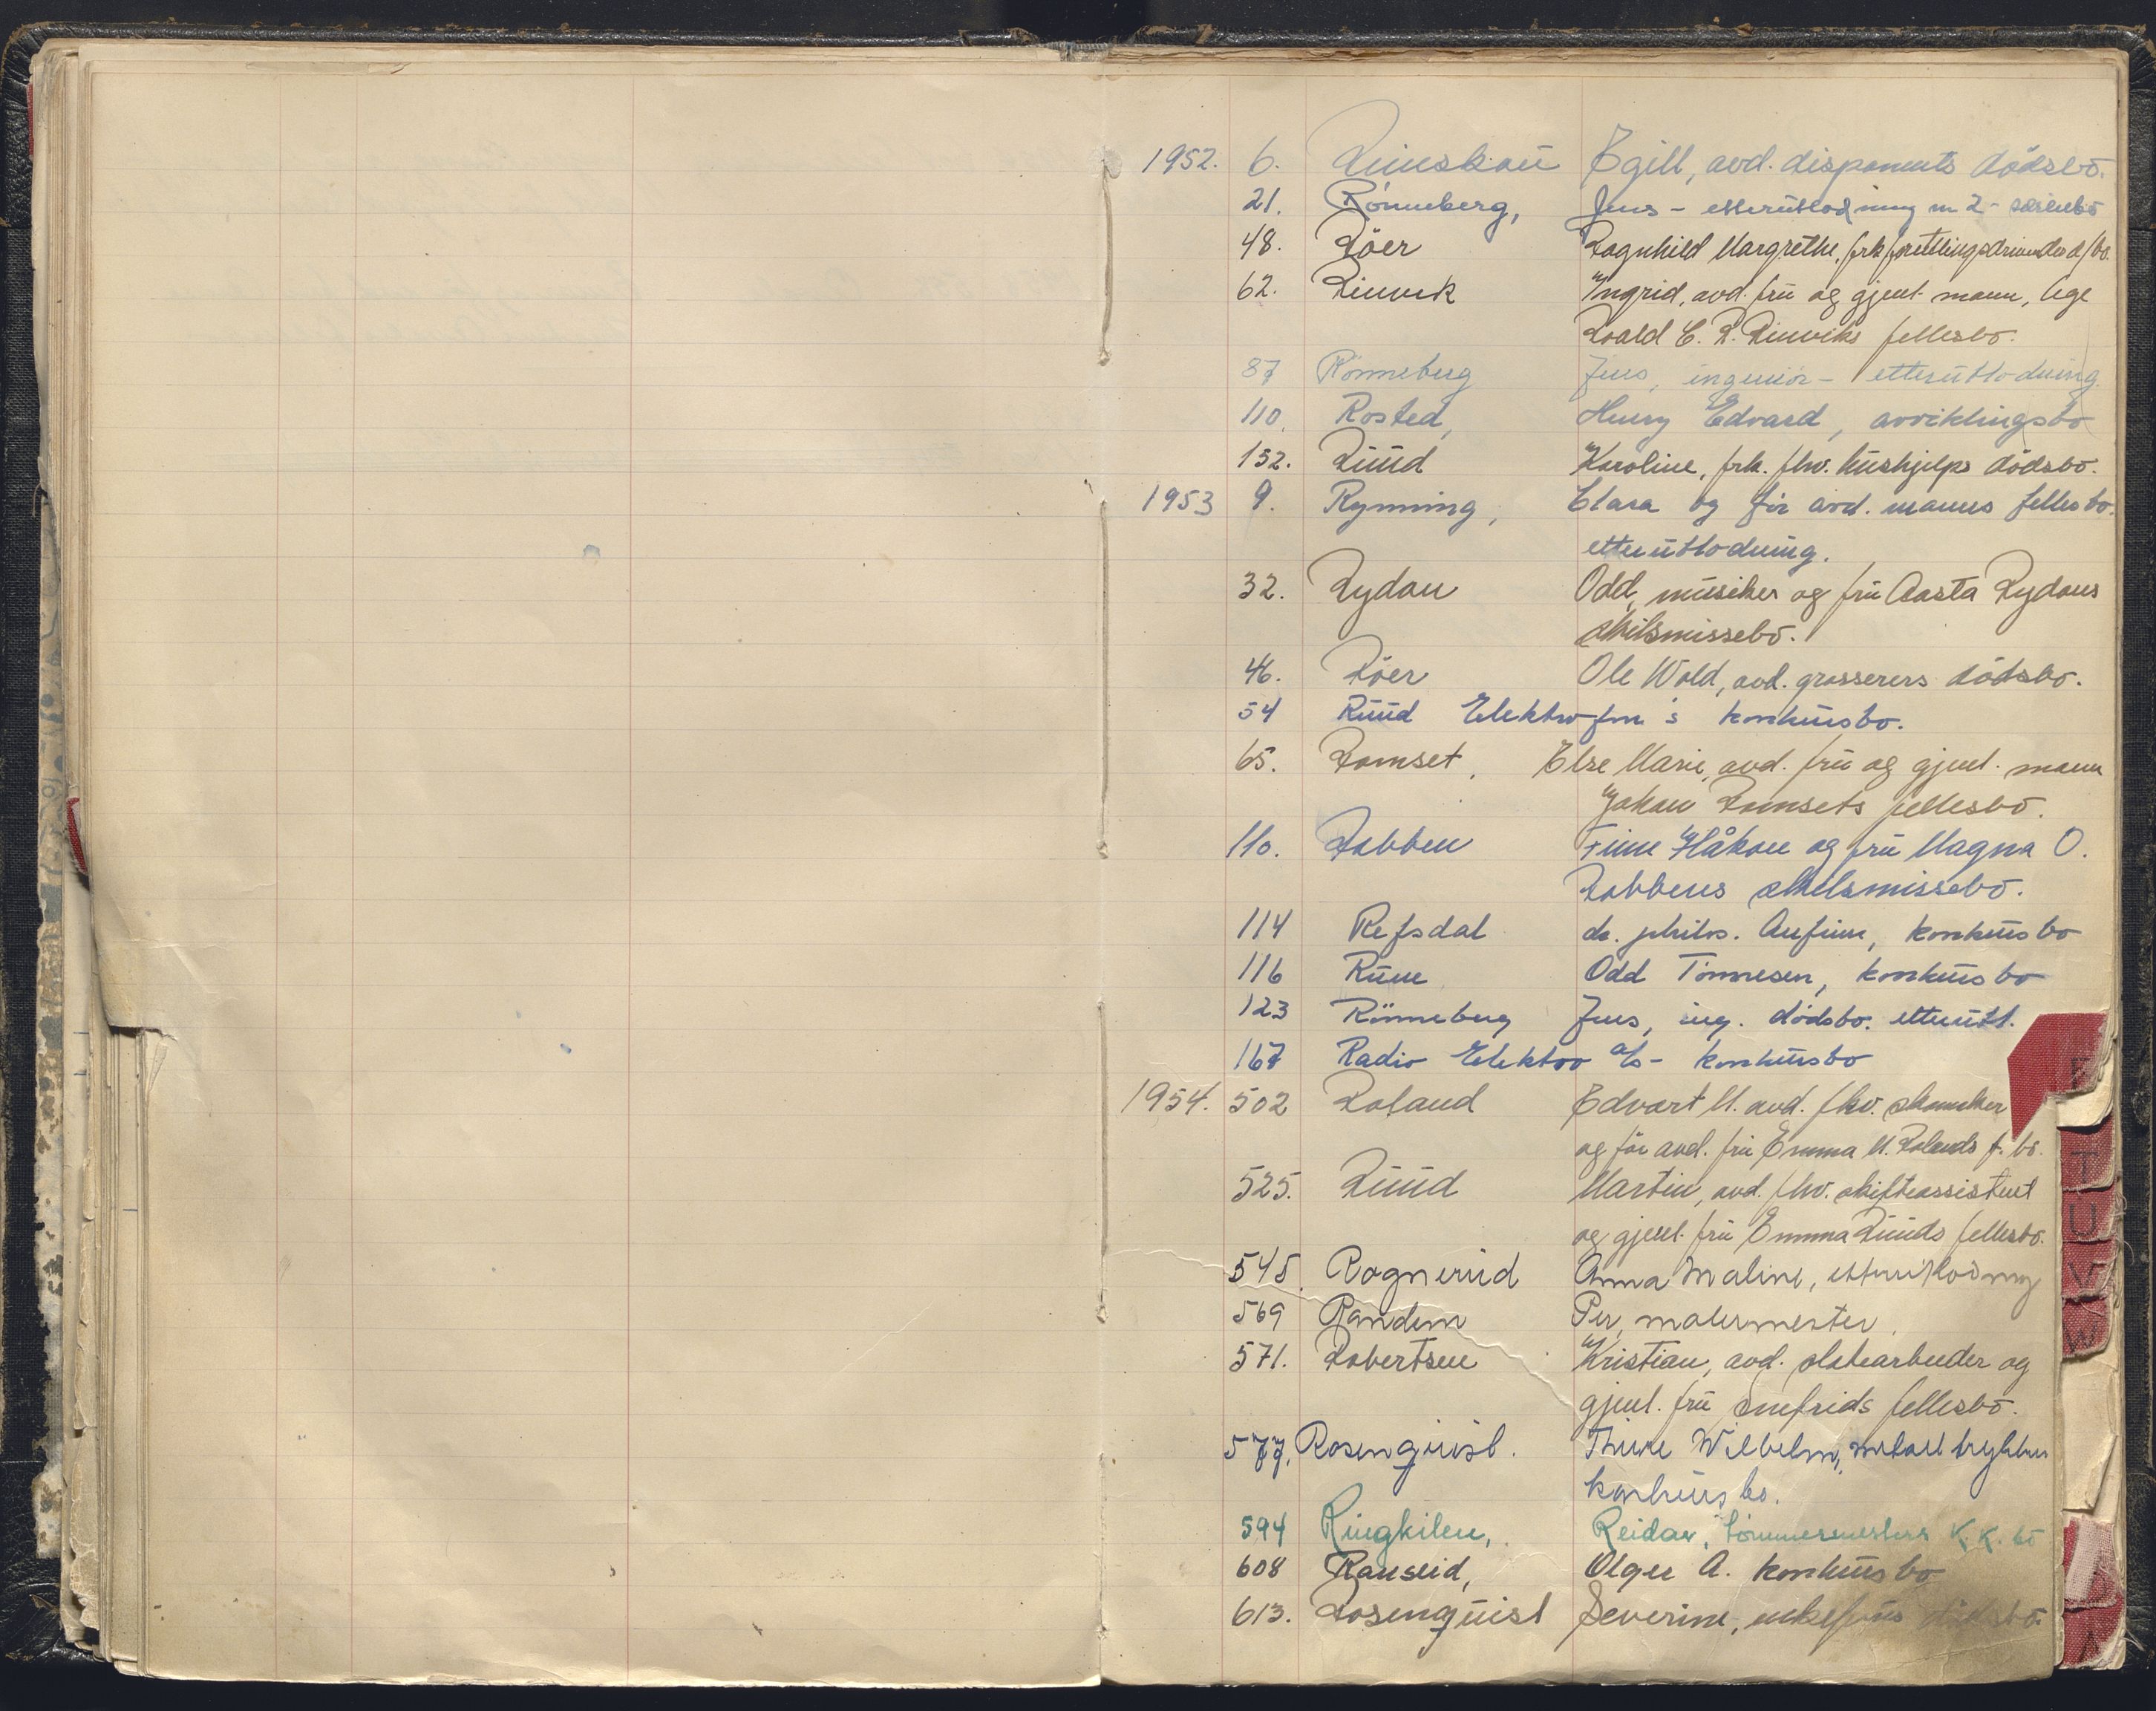 1952. 6. Rimskou Egill, avd. disponents dødsbo.
21. Rønneberg, Jens - etterutlodning m 2- særeiebo
48. Røer Ragnhild Margrethe, frk. forretningsdrivendes d/bo.
62. Rinvik Ingrid, avd. fru og gjenl. mann, lege
Roald C. R. Rinviks fellesbo.
87 Rønneberg Jens, ingeniør - etterutlodning.
110. Rosted, Henry Edvard, avviklingsbo
152. Ruud Karoline, frk. fhv. hushjelps dødsbo.
1953 9. Rynning, Clara og før avd. manns fellesbo.
etterutlodning.
32. Rydau Odd, musiker og fru Aasta Rydaus
skilsmissebo.
46. Røer Ole Wold, avd. grosserers dødsbo.
54 Ruud Elektrofon's konkursbo.
65. Romset, Else Marie, avd. fru og gjenl. mann
Johan Romsets fellesbo.
110. Robben Finn Håkon og fru Magna O.
Robbens skilsmissebo.
114 Refsdal dr. philos. Anfinn, konkursbo
116 Ruue Odd Tønnesen, konkursbo
123 Rønneberg Jens, ing. dødsbo. etterutl.
167 Radio Elektro a/s - konkursbo
1954. 502 Roland Edvart M. avd. fhv. skomaker
og før avd. fru Emma M. Rolands f. bo.
525. Ruud Martin, avd. fhv. skifteassistent
og gjenl. fru Emma Ruuds fellesbo.
545. Rognerud Anna Maline, etterutlodning
569 Randem Per, malermester.
571. Robertsen Kristian, avd. platearbeider og
gjenl. fru Snefrids fellesbo.
577. Rosenquist. Thure Wilhelm, metalltrykker
konkursbo.
594 Ringkilen, Reidar, tømmermesters K.K. bo
608 Ranseid, Olger A. konkursbo
613. Rosenquist Severine, enkefrus dødsbo.
R
T
U
V
W